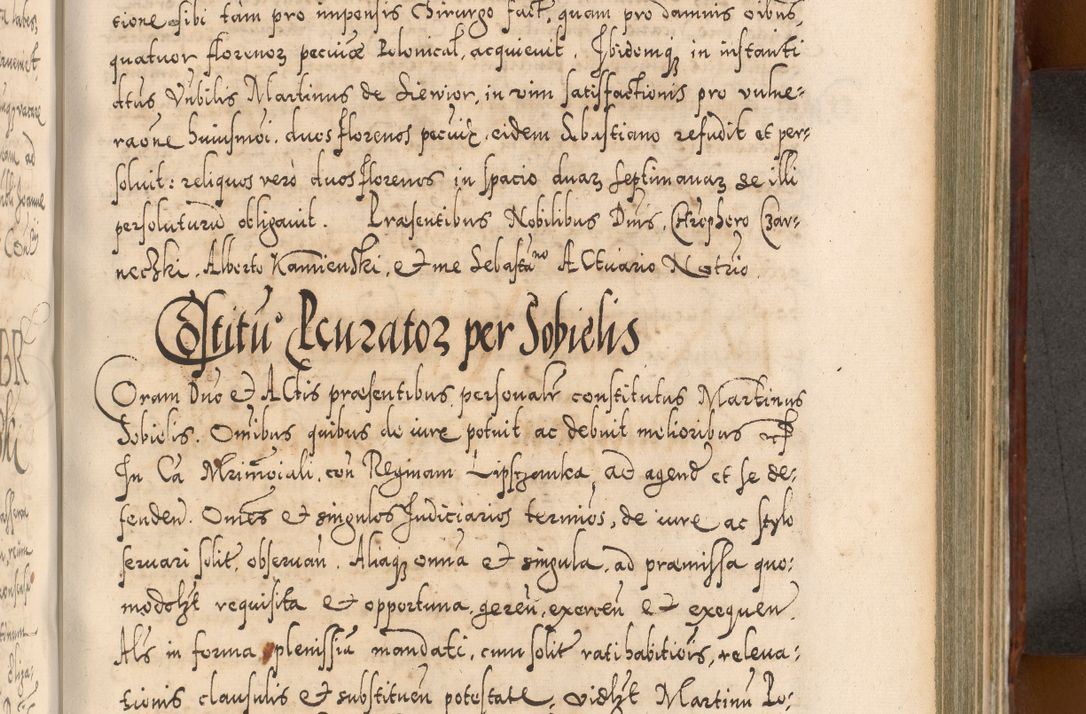 tione sibi tàm pro impensis Chirurgo fact, quam pro damnis oibus,
quatuor florenoꝝ pecuiæ Polonical, acquieuit. Ibidemqꝫ in instanti
dtus Nbilis Martinus de Sieniòr, in vim satisfactionis pro vulne-
raone huiusmoi, duos florenos pecuiæ, eidem Sebastiano refudit et per-
soluit: reliquos verò duos florenos in spacio duaꝝ septimanaꝝ se illi
persoluturũ obligauit. Præsentibus Nobilibus Dnis, Chrõphoro Czar-
neczki, Alberto Kamienski, et me Sebastiano Actuario Notrio.
Costitũ Pcuratoꝝ per Sobielis
Coram Dno et Actis præsentibus personalr constitutus Martinus
Sobielis. Omibus quibus de iure potuit ac debuit melioribus
In Ca Mrimoiali, con Reginam Lipszowka, ad agend et se de-
fenden. Omes et singulos Judiciarios termios, de iure ac stylo
seruari solit, obseruan. Aliaqꝫ omia et singula, ad præmissa quo-
modolzt requisita et opportuna, gereñ, exerceñ et exequen.
Als in forma plenissia mandati, cum solit ratihabitiois, releua-
tionis clausulis et substitueñ potestate, vidlzt Martinũ Po-